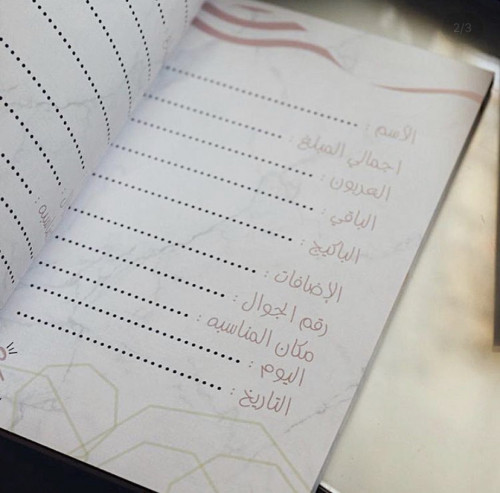 2/3
الاسم :
اجمالي المبلغ :
العربون :
الباقي :
الباكيج :
الإضافات :
رقم الجوال :
مكان المناسبه :
اليوم :
التاريخ :